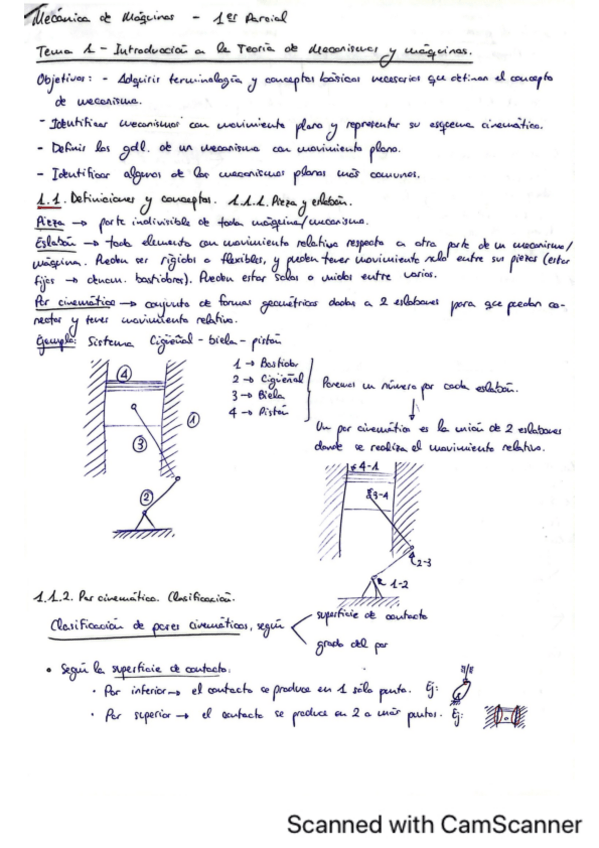 Mecánica de Máquinas - 1er Parcial
Tema 1 - Introducción a la Teoría de Mecanismos y máquinas.
Objetivos: - Adquirir terminología y conceptos básicos necesarios que definan el concepto
de mecanismo.
- Identificar mecanismos con movimiento plano y representar su esquema cinemático.
- Definir los gdl. de un mecanismo con movimiento plano.
- Identificar algunos de los mecanismos planos más comunes.
1.1. Definiciones y conceptos. 1.1.1. Pieza y eslabón.
Pieza → parte indivisible de toda máquina/mecanismo.
Eslabón → todo elemento con movimiento relativo respecto a otra parte de un mecanismo/
máquina. Pueden ser rígidos o flexibles, y pueden tener movimiento nulo entre sus piezas (estar
fijos → denom. bastidores). Pueden estar solos o unidos entre varios.
Par cinemático → conjunto de formas geométricas dadas a 2 eslabones para que puedan co-
nectar y tener movimiento relativo.
Ejemplo: Sistema Cigüeñal - biela - pistón
1 → Bastidor
2 → Cigüeñal
3 → Biela
4 → Pistón
Ponemos un número por cada eslabón.
Un par cinemático es la unión de 2 eslabones
donde se realiza el movimiento relativo.
4
1
3
2
4-1
3-4
2-3
1-2
1.1.2. Par cinemático. Clasificación.
Clasificación de pares cinemáticos, según
superficie de contacto
grado del par
• Según la superficie de contacto:
· Par inferior → el contacto se produce en 1 sólo punto. Ej:
· Par superior → el contacto se produce en 2 o más puntos. Ej:
Scanned with CamScanner